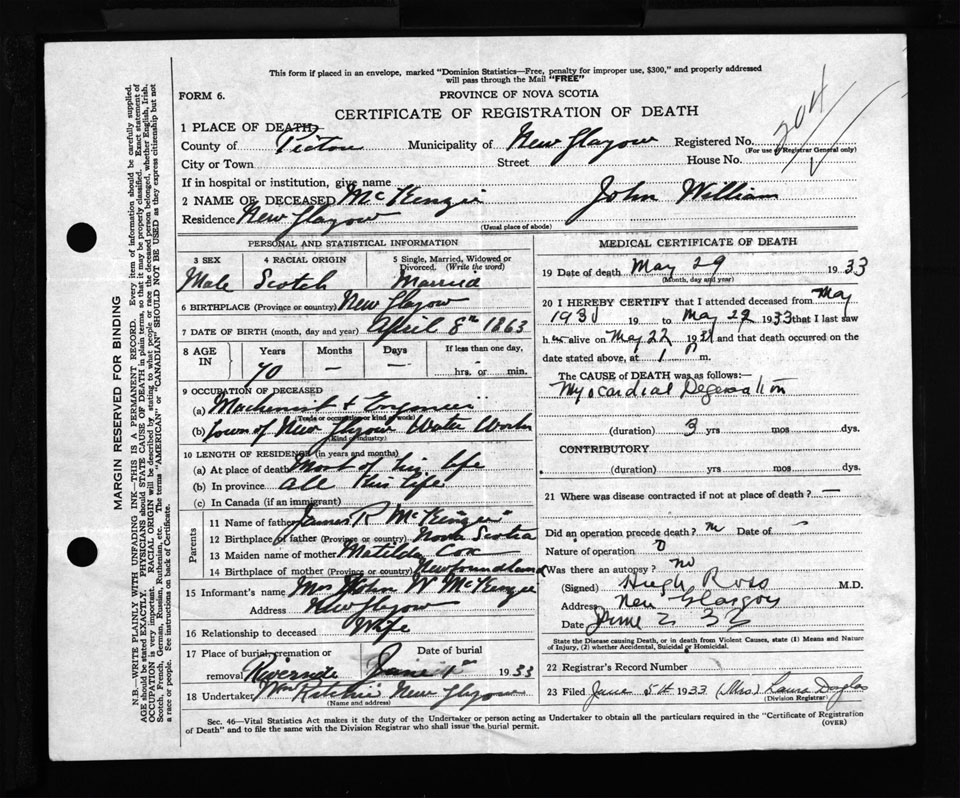 This form if placed in an envelope, marked "Dominion Statistics—Free, penalty for improper use, $300," and properly addressed
will pass through the Mail "FREE"
FORM 6.
PROVINCE OF NOVA SCOTIA
CERTIFICATE OF REGISTRATION OF DEATH
204
1 PLACE OF DEATH
County of Pictou Municipality of New Glasgow Registered No.
(For use of Registrar General only)
City or Town Street House No.
If in hospital or institution, give name
2 NAME OF DECEASED McKenzie John William
Residence New Glasgow
(Usual place of abode)
PERSONAL AND STATISTICAL INFORMATION
3 SEX 4 RACIAL ORIGIN 5 Single, Married, Widowed or Divorced. (Write the word)
Male Scotch Married
6 BIRTHPLACE (Province or country) New Glasgow
7 DATE OF BIRTH (month, day and year) April 8th 1863
8 AGE IN Years Months Days If less than one day,
70 — — hrs. or min.
9 OCCUPATION OF DECEASED
(a) Machinist + Engineer
(Trade or occupation or kind of work)
(b) Town of New Glasgow Water Works
(Kind of industry)
10 LENGTH OF RESIDENCE (in years and months)
(a) At place of death Most of his life
(b) In province all his life
(c) In Canada (if an immigrant)
Parents
11 Name of father James R McKenzie
12 Birthplace of father (Province or country) Nova Scotia
13 Maiden name of mother Matilda Cox
14 Birthplace of mother (Province or country) Newfoundland
15 Informant's name Mrs John W McKenzie
Address New Glasgow
16 Relationship to deceased Wife
17 Place of burial, cremation or removal Date of burial
Riverside June 1st 1933
18 Undertaker Wm Ritchie New Glasgow
(Name and address)
MEDICAL CERTIFICATE OF DEATH
19 Date of death May 29 1933
(Month, day and year)
20 I HEREBY CERTIFY that I attended deceased from May
193 19 to May 29 1933 that I last saw
him alive on May 22 193 and that death occurred on the
date stated above, at 1 P m.
The CAUSE of DEATH was as follows:—
Myocardial Degeneration
(duration) 3 yrs mos dys.
CONTRIBUTORY
(duration) yrs mos dys.
21 Where was disease contracted if not at place of death? —
Did an operation precede death? no Date of —
Nature of operation 0
Was there an autopsy? no
(Signed) Hugh Ross M.D.
Address New Glasgow
Date June 2 33
State the Disease causing Death, or in death from Violent Causes, state (1) Means and Nature
of Injury, (2) whether Accidental, Suicidal or Homicidal.
22 Registrar's Record Number
23 Filed June 5th 1933 (Mrs) Laura Douglas
(Division Registrar)
Sec. 46—Vital Statistics Act makes it the duty of the Undertaker or person acting as Undertaker to obtain all the particulars required in the "Certificate of Registration
of Death" and to file the same with the Division Registrar who shall issue the burial permit. (OVER)
MARGIN RESERVED FOR BINDING
N.B.—WRITE PLAINLY WITH UNFADING INK—THIS IS A PERMANENT RECORD. Every item of information should be carefully supplied.
AGE should be stated EXACTLY. PHYSICIANS should STATE CAUSE OF DEATH in plain terms, so that it may be properly classified. Exact statement of
OCCUPATION is very important. RACIAL ORIGIN will be described by stating to what people or race the deceased person belonged, whether English, Irish,
Scotch, French, German, Russian, Ruthenian, etc. The terms "AMERICAN" or "CANADIAN" SHOULD NOT BE USED as they express citizenship but not
a race or people. See instructions on back of Certificate.